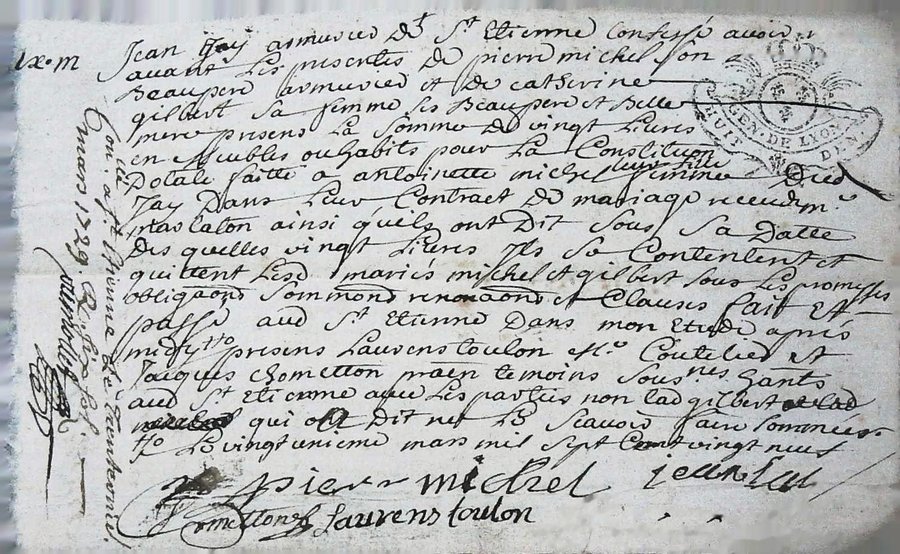 Jean Jay armurier de St Etienne confesse avoir
avant les presentes de pierre michel son
Beaupere armurier et de catherine
gilbert sa femme ses Beaupere et Belle
mere presens La somme de vingt Livres
en meubles ou habits pour La Constitution
Dotale faitte a antoinette michel leur fille femme Dud
Jay Dans Leur Contract de mariage receu dem
ainsi qu'ils ont Dit sous Sa Datte
Des quelles vingt Livres Ils Se Contentent et
quittent Lesd mariés michel et gilbert sous Les promesses
obliga'ons et Clauses fait Et
passé aud St Etienne Dans mon Etude aprés
midy presens Laurens toulon Me Coutelier et
Jacques Chometton pra'en temoins Sous nes hants
aud St Etienne avec Les parties non lad gilbert
qui ont Dit ne Le Scavoir faire
Le vingt unieme mars mil Sept Cent vingt neuf
pierre michel jean Jay
Chometton Laurens toulon
GEN. DE LYON
HUIT DEN.
Con. a St Etienne Le trente un
mars 1729.